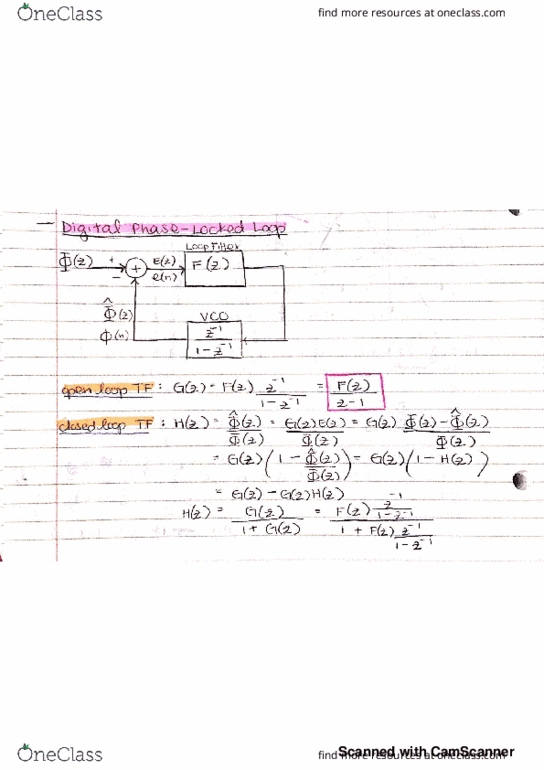 OneClass
find more resources at oneclass.com
- Digital Phase-Locked Loop
Loop Filter
Φ(z) + E(z) F(z)
- + e(n)
Φ̂(z) VCO
ϕ(n) z⁻¹ / 1 - z⁻¹
open loop TF: G(z) = F(z) z⁻¹ / 1 - z⁻¹ = F(z) / z - 1
closed loop TF: H(z) = Φ̂(z) / Φ(z) = G(z)E(z) / Φ(z) = G(z) Φ(z) - Φ̂(z) / Φ(z)
= G(z) (1 - Φ̂(z) / Φ(z)) = G(z) (1 - H(z))
= G(z) - G(z)H(z)
H(z) = G(z) / 1 + G(z) = F(z) z⁻¹ / 1 - z⁻¹ / 1 + F(z) z⁻¹ / 1 - z⁻¹
OneClass
find more resources at oneclass.com
Scanned with CamScanner